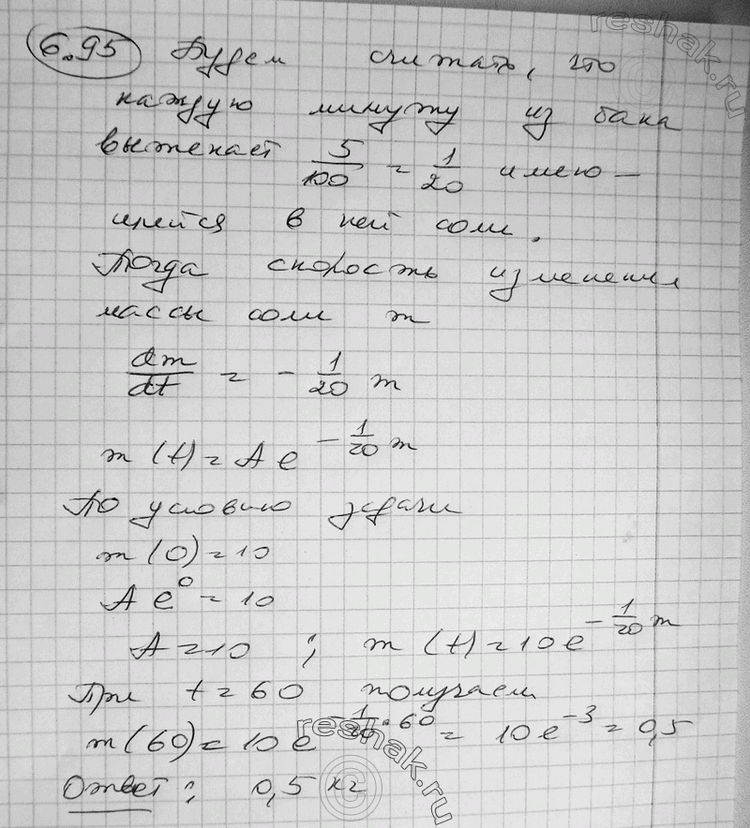 6.95 Будем считать, что
каждую минуту из бака
вытекает 5/100 = 1/20 имею-
щейся в ней соли.
Тогда скорость изменения
массы соли m
dm/dt = - 1/20 m
m(t) = A e^(-1/20 m)
По условию задачи
m(0) = 10
A e^0 = 10
A = 10 ; m(t) = 10 e^(-1/20 m)
При t = 60 получаем
m(60) = 10 e^(-1/20 · 60) = 10 e^(-3) = 0,5
Ответ: 0,5 кг
reshak.ru
reshak.ru